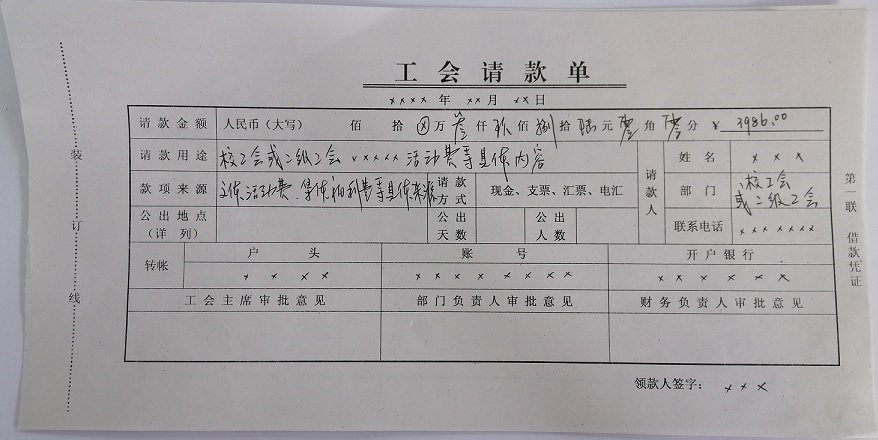 工会请款单
×××× 年 ×× 月 ×× 日
请款金额 人民币（大写） 佰 拾 ⊗万 叁仟 玖佰 捌拾 陆元 零角 零分 ¥ 3986.00
请款用途 校工会或二级工会 ××××× 活动费等具体内容 请款人 姓名 × × ×
款项来源 文体活动费、集体福利费等具体来源 请款方式 现金、支票、汇票、电汇 部门 校工会或二级工会
公出地点（详列） 公出天数 公出人数 联系电话 × × × × × × ×
转帐 户头 账号 开户银行
× × × × × × × × × × × × × × × × × ×
工会主席审批意见 部门负责人审批意见 财务负责人审批意见
领款人签字： × × ×
装订线
第一联 借款凭证